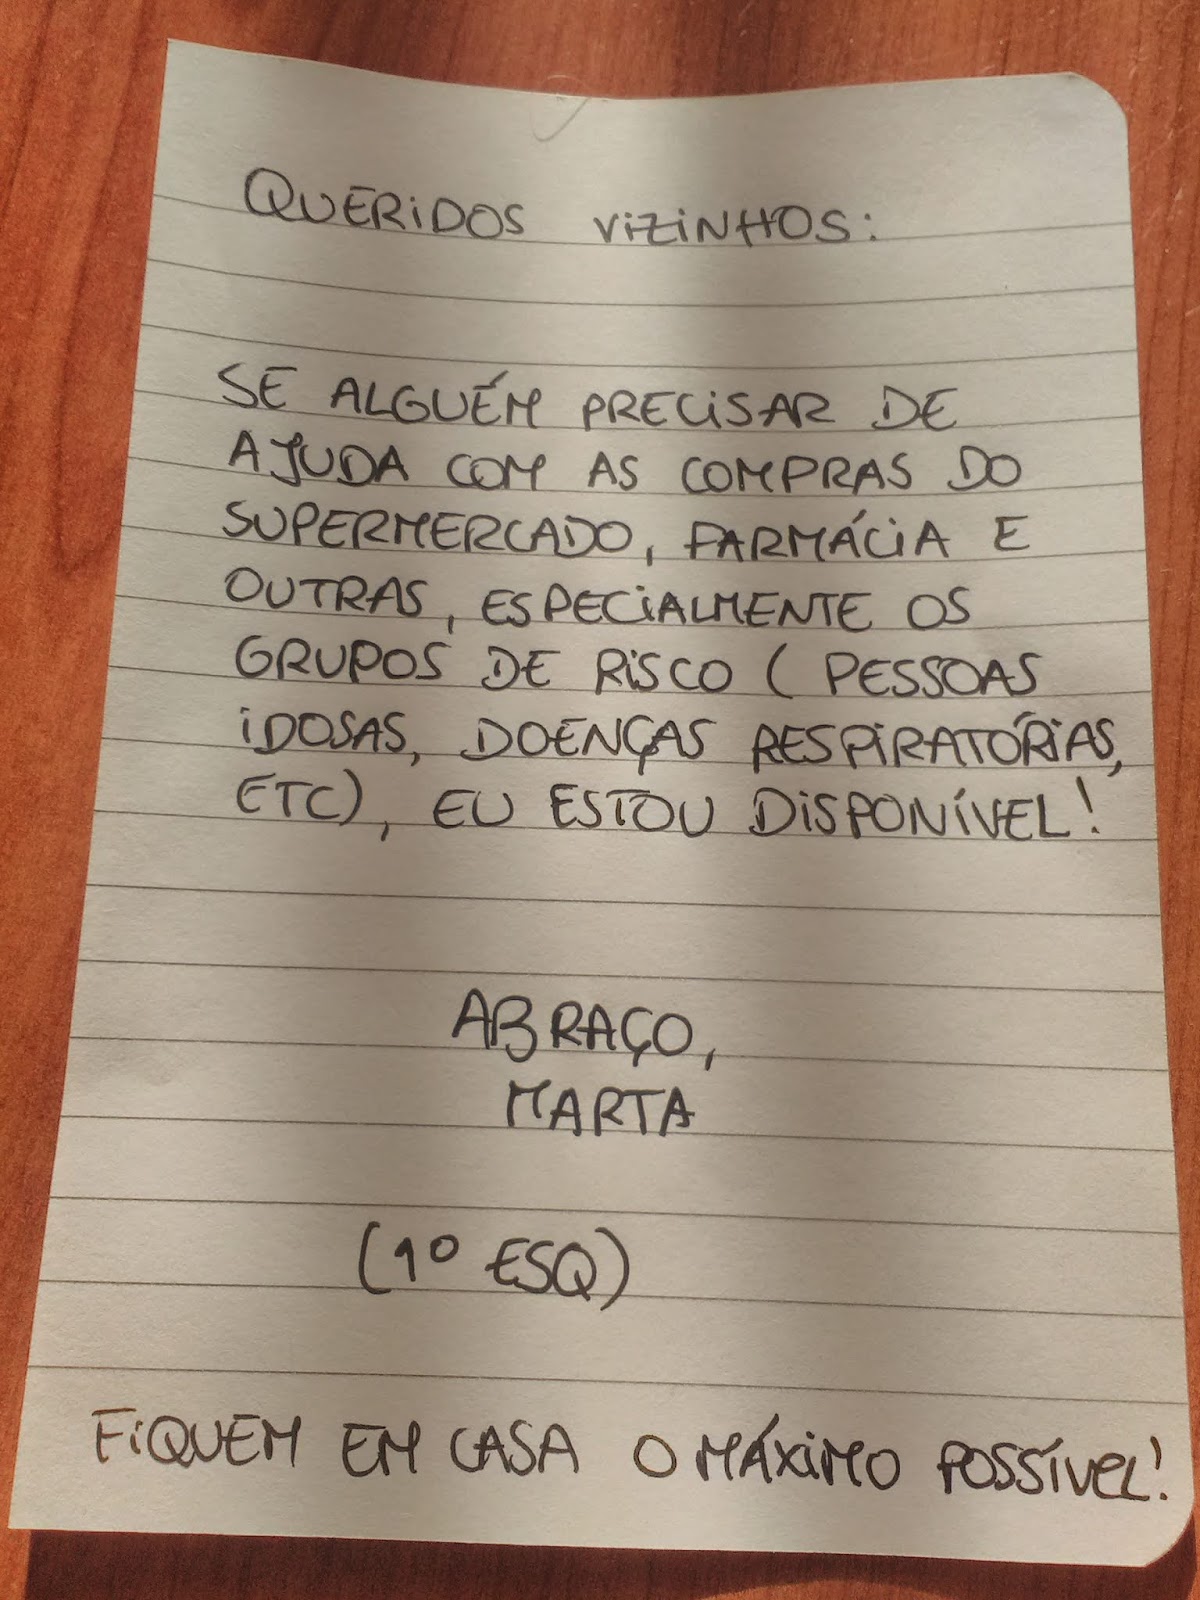 QUERIDOS VIZINHOS:
SE ALGUÉM PRECISAR DE
AJUDA COM AS COMPRAS DO
SUPERMERCADO, FARMÁCIA E
OUTRAS, ESPECIALMENTE OS
GRUPOS DE RISCO (PESSOAS
IDOSAS, DOENÇAS RESPIRATÓRIAS,
ETC), EU ESTOU DISPONÍVEL!
ABRAÇO,
MARTA
(1º ESQ)
FIQUEM EM CASA O MÁXIMO POSSÍVEL!